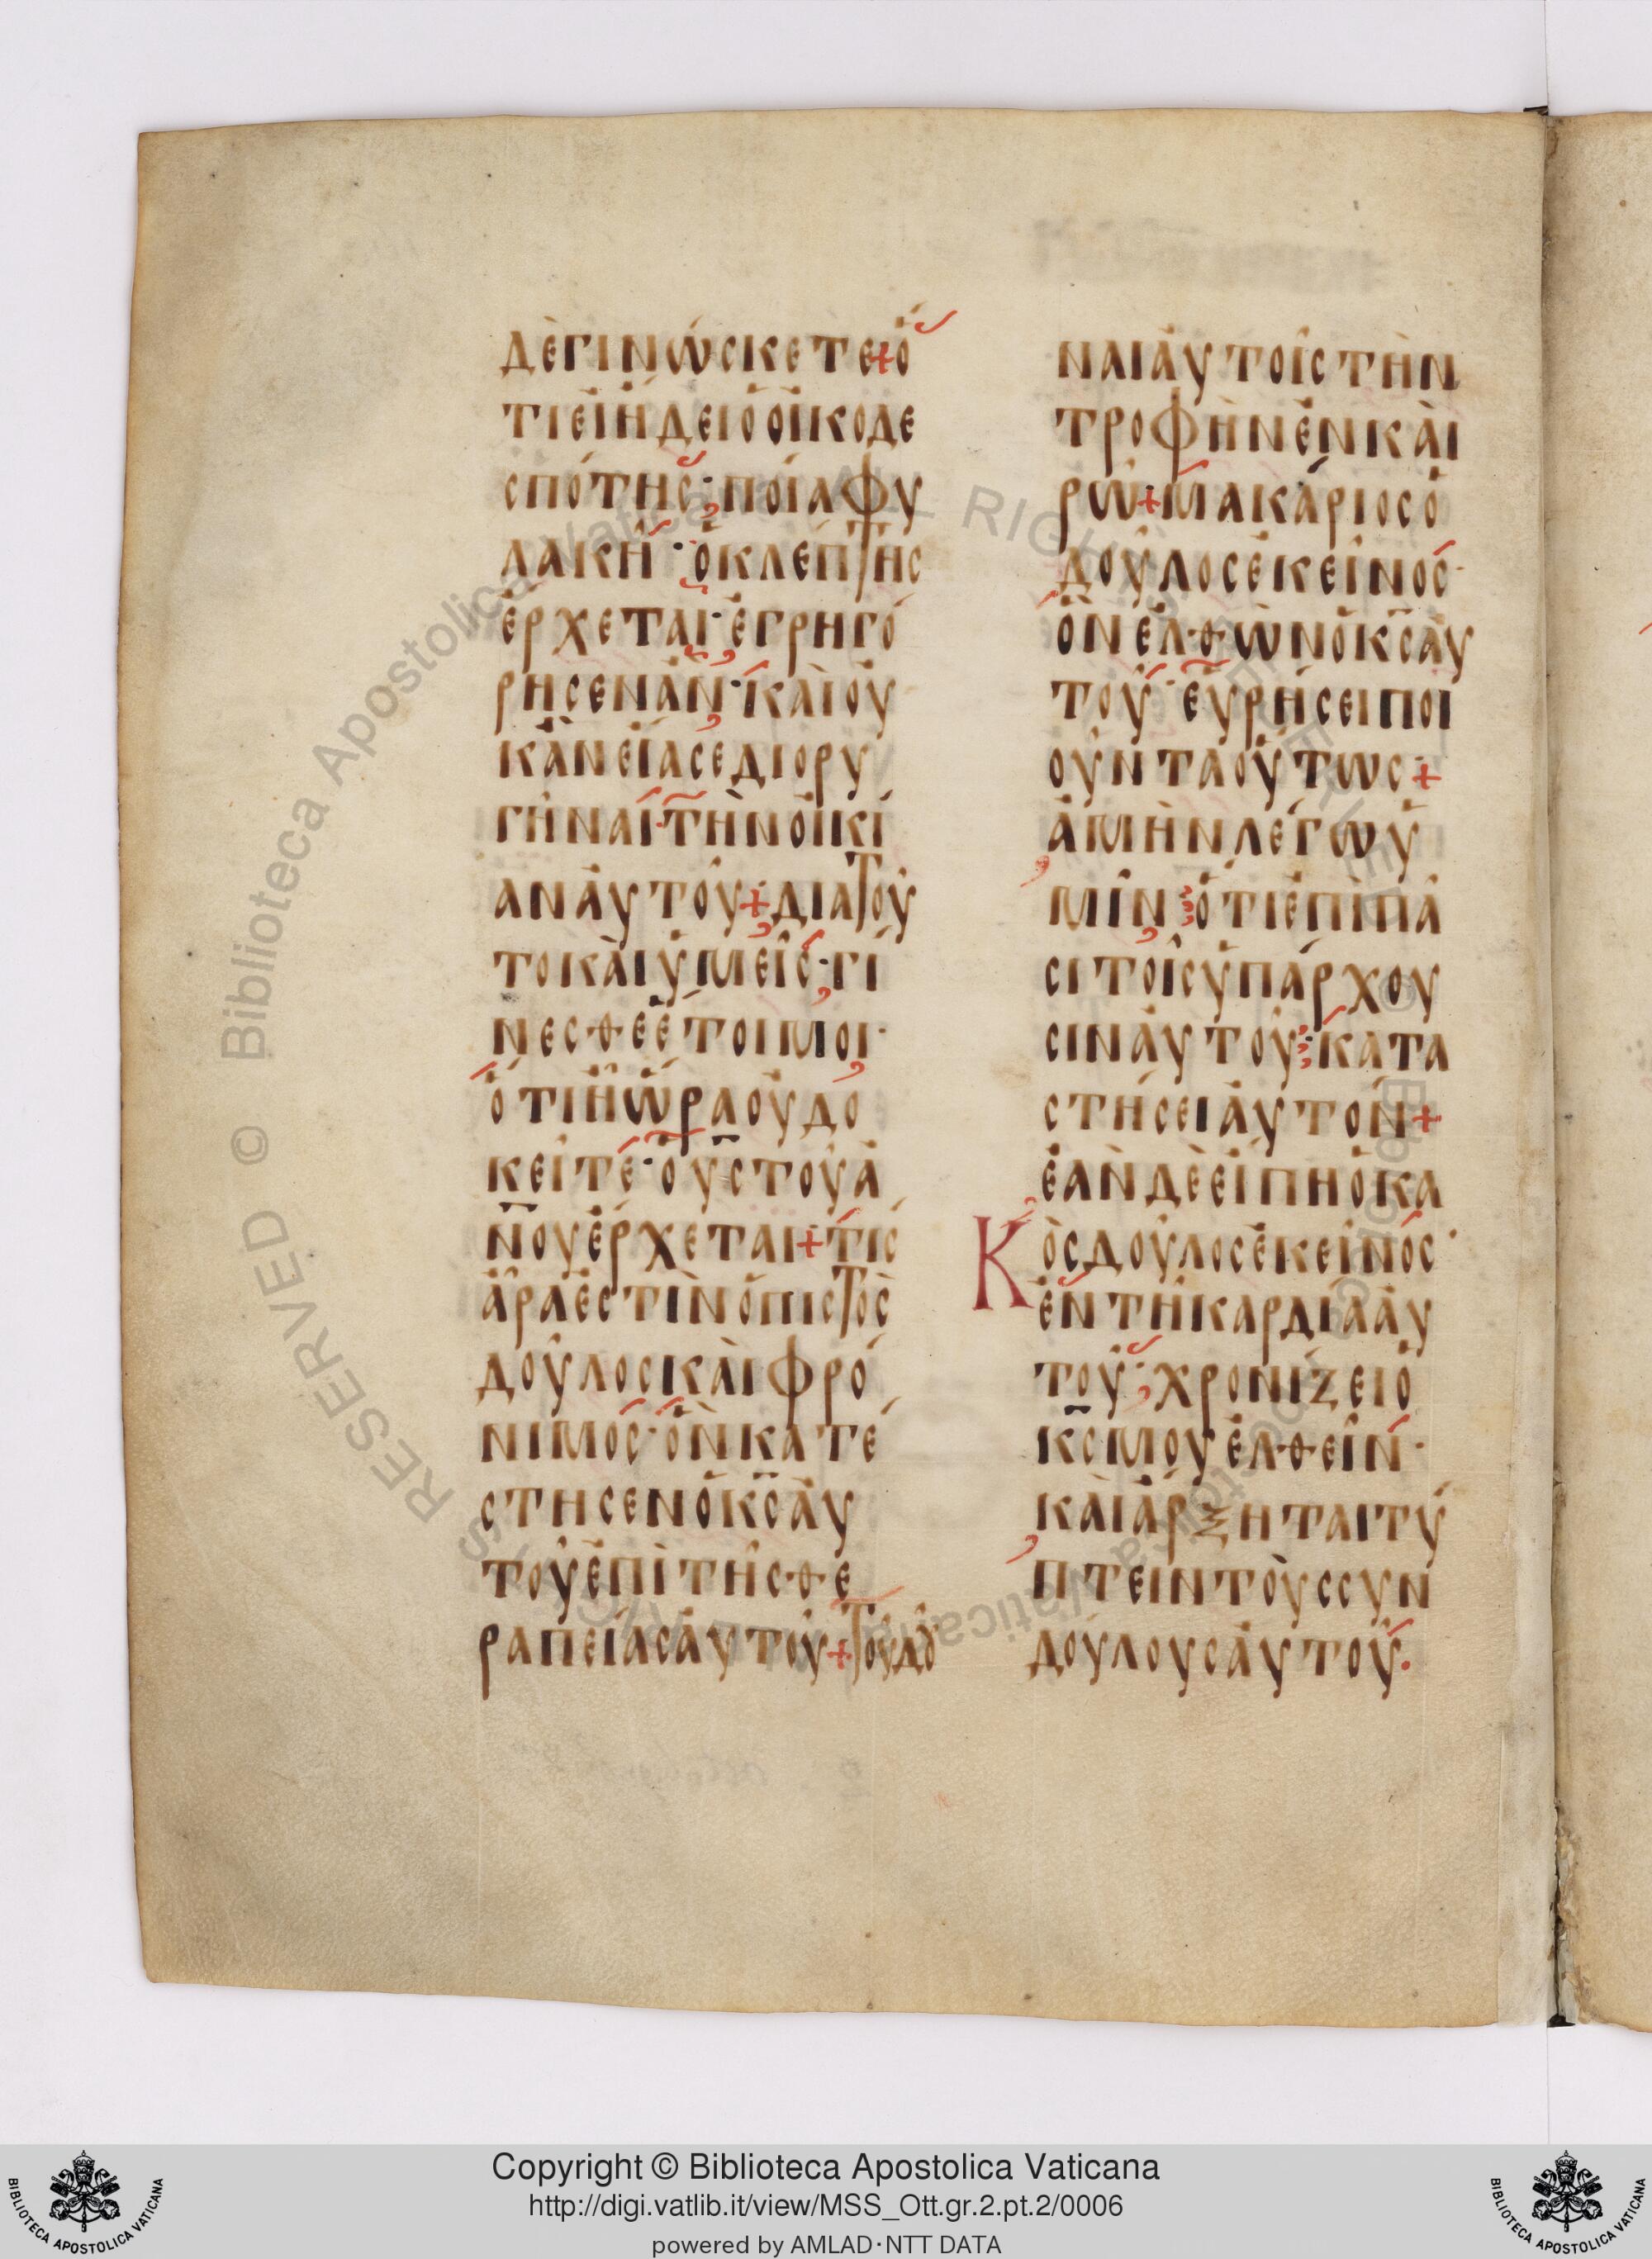 δὲ γινώσκετε + ὅ
τι εἰ ἤδει ὁ οἰκοδε
σπότης · ποία φυ
λακῆ · ὁ κλέπτης
ἔρχεται · ἐγρηγό
ρησεν ἂν · καὶ οὐ
κ ἂν εἴασε διορυ
γῆναι · τὴν οἰκί
αν αὐτοῦ + διὰ τοῦ
το καὶ ὑμεῖς · γί
νεσθε ἕτοιμοι ·
ὅτι ἧ ὥρα οὐ δο
κεῖτε · ὁ υ̅ς̅ τοῦ α̅
ν̅ο̅υ̅ ἔρχεται + τίς
ἆρα ἐστὶν ὁ πιστὸς
δοῦλος καὶ φρό
νιμος · ὃν κατέ
στησεν ὁ κ̅ς̅ αὐ
τοῦ ἐπὶ τῆς θε
ραπείας αὐτοῦ + τοῦ δοῦ
ναι αὐτοῖς τὴν
τροφὴν ἐν και
ρῶ + μακάριος ὁ
δοῦλος ἐκεῖνος ·
ὃν ἐλθὼν ὁ κ̅ς̅ αὐ
τοῦ · εὑρήσει ποι
οῦντα οὕτως +
ἀμὴν λέγω ὑ
μῖν ⁝ ὅτι ἐπὶ πᾶ
σι τοῖς ὑπάρχου
σιν αὐτοῦ ⁝ κατα
στήσει αὐτόν +
ἐὰν δὲ εἴπη ὁ κα
Κὸς δοῦλος ἐκεῖνος ·
ἐν τῆ καρδία αὐ
τοῦ · χρονίζει ὁ
κ̅ς̅ μου ἐλθεῖν ·
καὶ ἄρξηται τύ
πτειν τοὺς συν
δούλους αὐτοῦ ·
Copyright © Biblioteca Apostolica Vaticana
http://digi.vatlib.it/view/MSS_Ott.gr.2.pt.2/0006
powered by AMLAD·NTT DATA
BIBLIOTECA APOSTOLICA VATICANA
BIBLIOTECA APOSTOLICA VATICANA